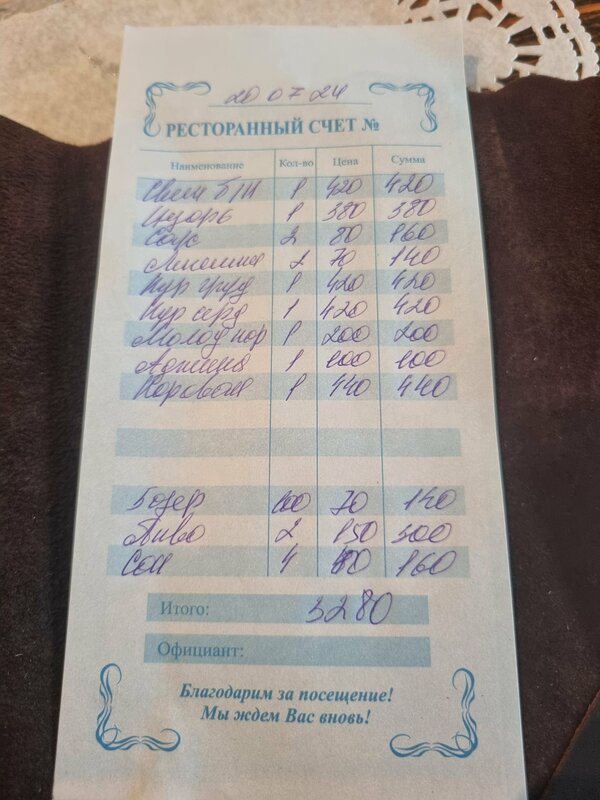 20 07 24
РЕСТОРАННЫЙ СЧЕТ №
Наименование Кол-во Цена Сумма
1 420 420
Цезарь 1 380 380
Соус 2 80 160
2 70 140
Кур груд 1 420 420
Кур серд 1 420 420
Молод кор 1 200 200
Аджика 1 100 100
1 440 440
100 70 140
Пиво 2 150 300
Сок 4 40 160
Итого: 3280
Официант:
Благодарим за посещение!
Мы ждем Вас вновь!